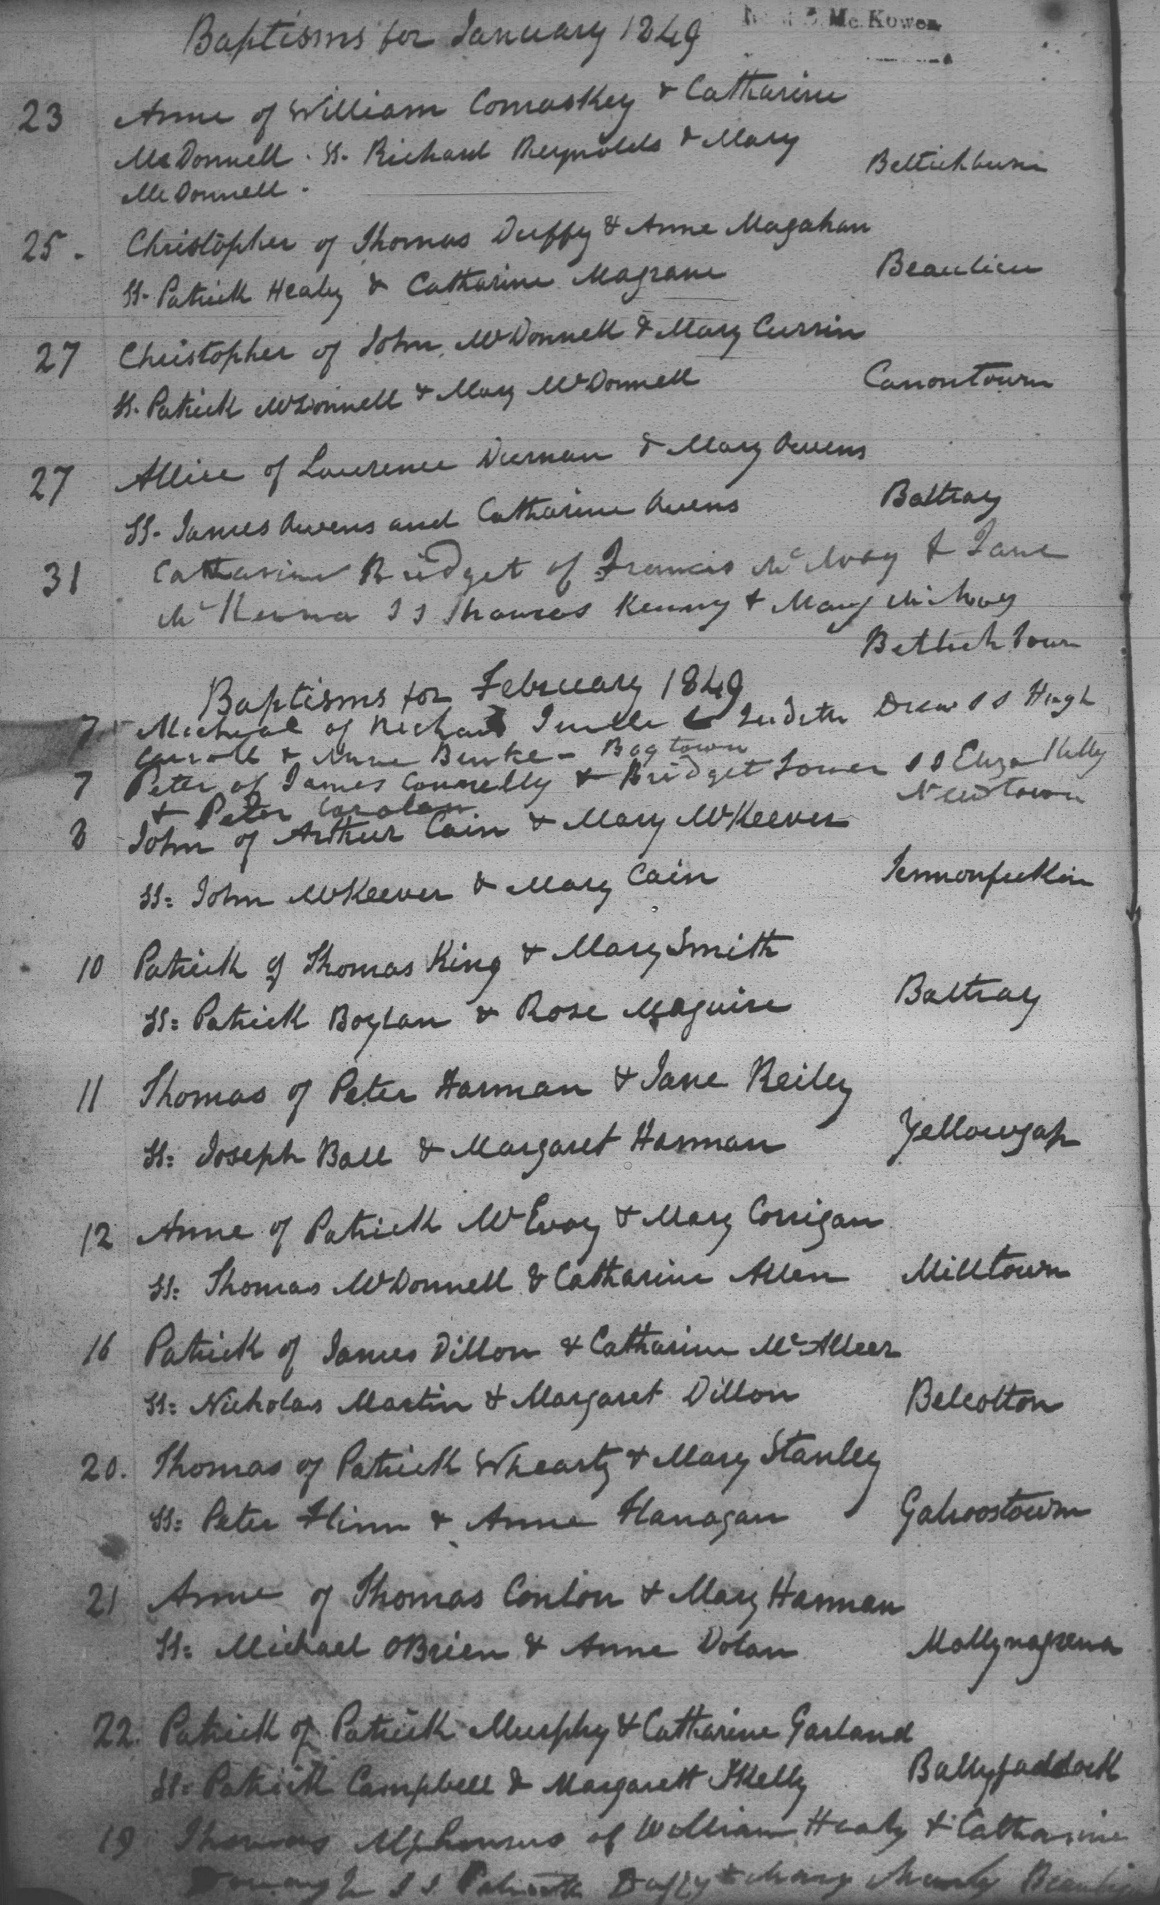 Baptisms for January 1849
Mc. Kowen
23 Anne of William Comaskey & Catharine
McDonnell. SS. Richard Reynolds & Mary
McDonnell.
25. Christopher of Thomas Duffy & Anne Magahan
SS. Patrick Healy & Catharine Magrane Beaulieu
27 Christopher of John McDonnell & Mary Currin
SS. Patrick McDonnell & Mary McDonnell Canontown
27 Allice of Laurence Durnan & Mary Owens
SS. James Owens and Catharine Owens Baltray
31 Catharine Bridget of Francis McAvoy & Jane
McKenna SS Thomas Kenny & Mary McAvoy
Baptisms for February 1849
7 Micheal of Richard & Judith Drew SS Hugh
Carroll & Anne Burke - Bogtown
7 Peter of James Connelly & Bridget SS Eliza Kelly
& Peter Carolan Newtown
8 John of Arthur Cain & Mary McKeever
SS: John McKeever & Mary Cain Termonfeckin
10 Patrick of Thomas King & Mary Smith
SS: Patrick Boylan & Rose Maguire Baltray
11 Thomas of Peter Harman & Jane Reiley
SS: Joseph Ball & Margaret Harman Yellowgap
12 Anne of Patrick McEvoy & Mary Corrigan
SS: Thomas McDonnell & Catharine Allen Milltown
16 Patrick of James Dillon & Catharine McAleer
SS: Nicholas Martin & Margaret Dillon Belcotton
20. Thomas of Patrick Whearty & Mary Stanley
SS: Peter Flinn & Anne Flanagan Galroostown
21 Anne of Thomas Conlon & Mary Harman
SS: Michael OBrien & Anne Dolan
22. Patrick of Patrick Murphy & Catharine Garland
SS: Patrick Campbell & Margarett Skelly
19 Thomas Alphonsus of William Healy & Catharine
SS Patrick Duffy & Mary